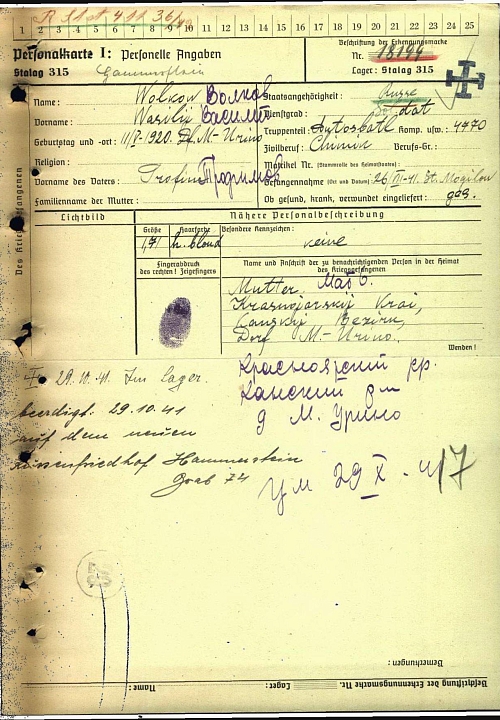 1 2 3 4 5 6 7 8 9 10 11 12 13 14 15 16 17 18 19 20 21 22 23 24 25
Personalkarte I: Personelle Angaben
Stalag 315
Hammerstein
Beschriftung der Erkennungsmarke
Nr. 18194
Lager: Stalag 315
Des Kriegsgefangenen
Name: Wolkow Волков
Vorname: Wasilij Василий
Geburtstag und -ort: 11/V-1920. M-Urino
Religion:
Vorname des Vaters: Trofim Трофимов
Familienname der Mutter:
Staatsangehörigkeit: Russe
Dienstgrad: Soldat
Truppenteil: Autosbatl Komp. usw.: 4770
Zivilberuf: Berufs-Gr.:
Matrikel Nr. (Stammrolle des Heimatstaates)
Gefangennahme (Ort und Datum): 26 VII-41. St. Mogilow
Ob gesund, krank, verwundet eingeliefert: ges.
Lichtbild
Nähere Personalbeschreibung
Größe
Haarfarbe
Besondere Kennzeichen:
1,71 h. blond keine
Fingerabdruck
des rechten! Zeigefingers
Name und Anschrift der zu benachrichtigenden Person in der Heimat
des Kriegsgefangenen
Mutter
Krasnojarskij Krai,
Kanskij Bezirk,
Dorf M-Urino.
Wenden!
Красноярский кр.
Канский
д М. Урино
29.10.41. Im Lager.
beerdigt. 29.10.41
auf dem neuen
Russenfriedhof Hammerstein
Grab 74
ум 29 X - 41
Bemerkungen:
Name:
Lager:
Beschriftung der Erkennungsmarke Nr.